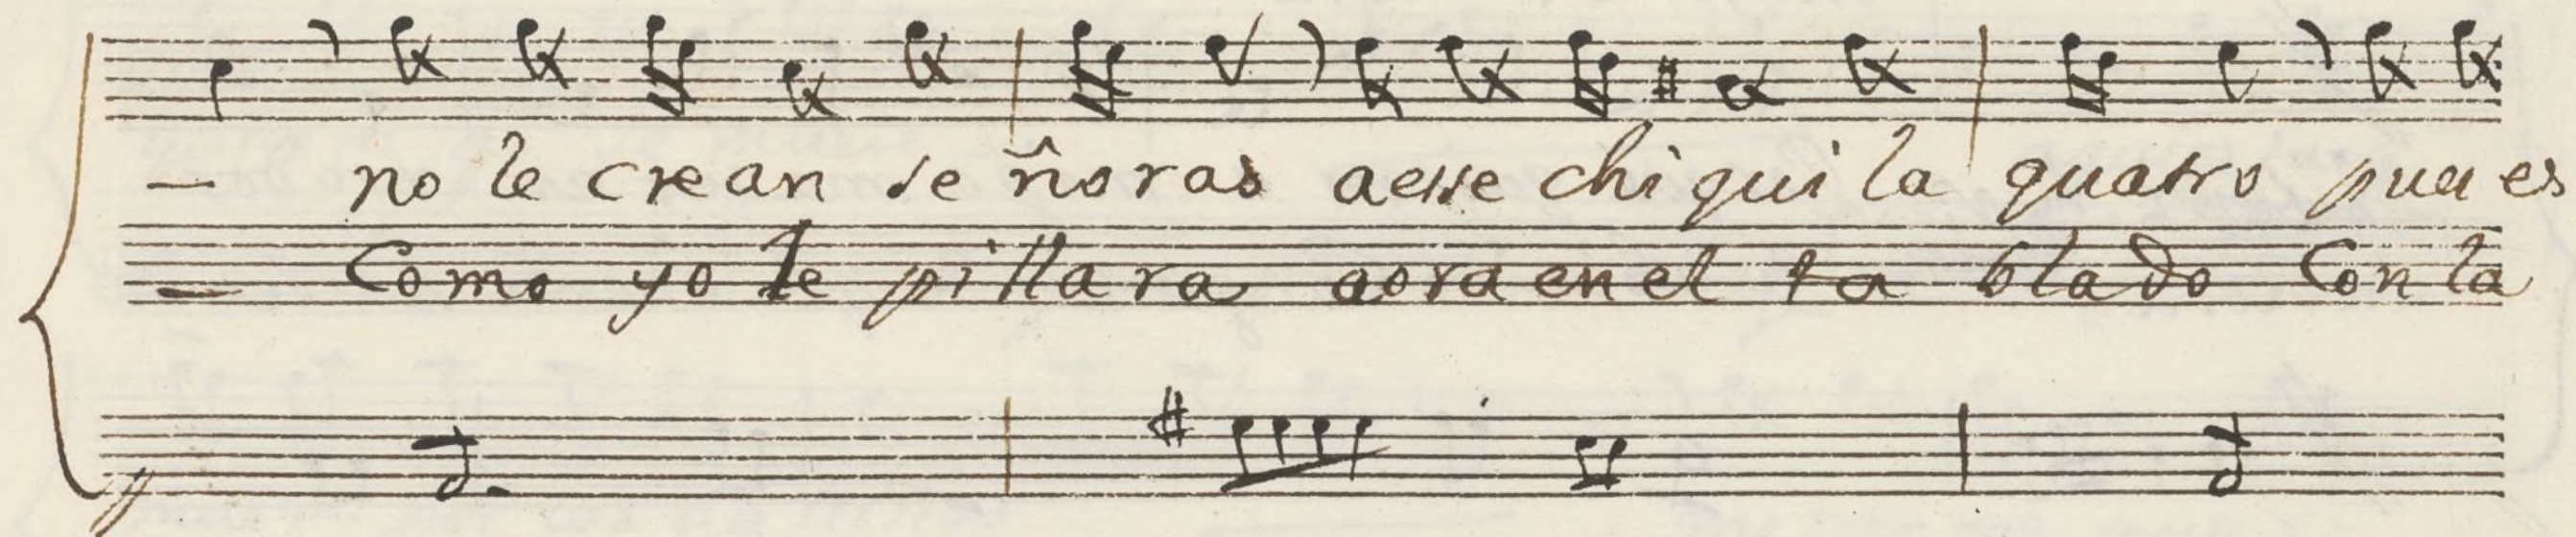 – no le crean se ñoras a esse chi qui la quatro pues es
– Como yo le pi lla ra aora en el ta blado Con la